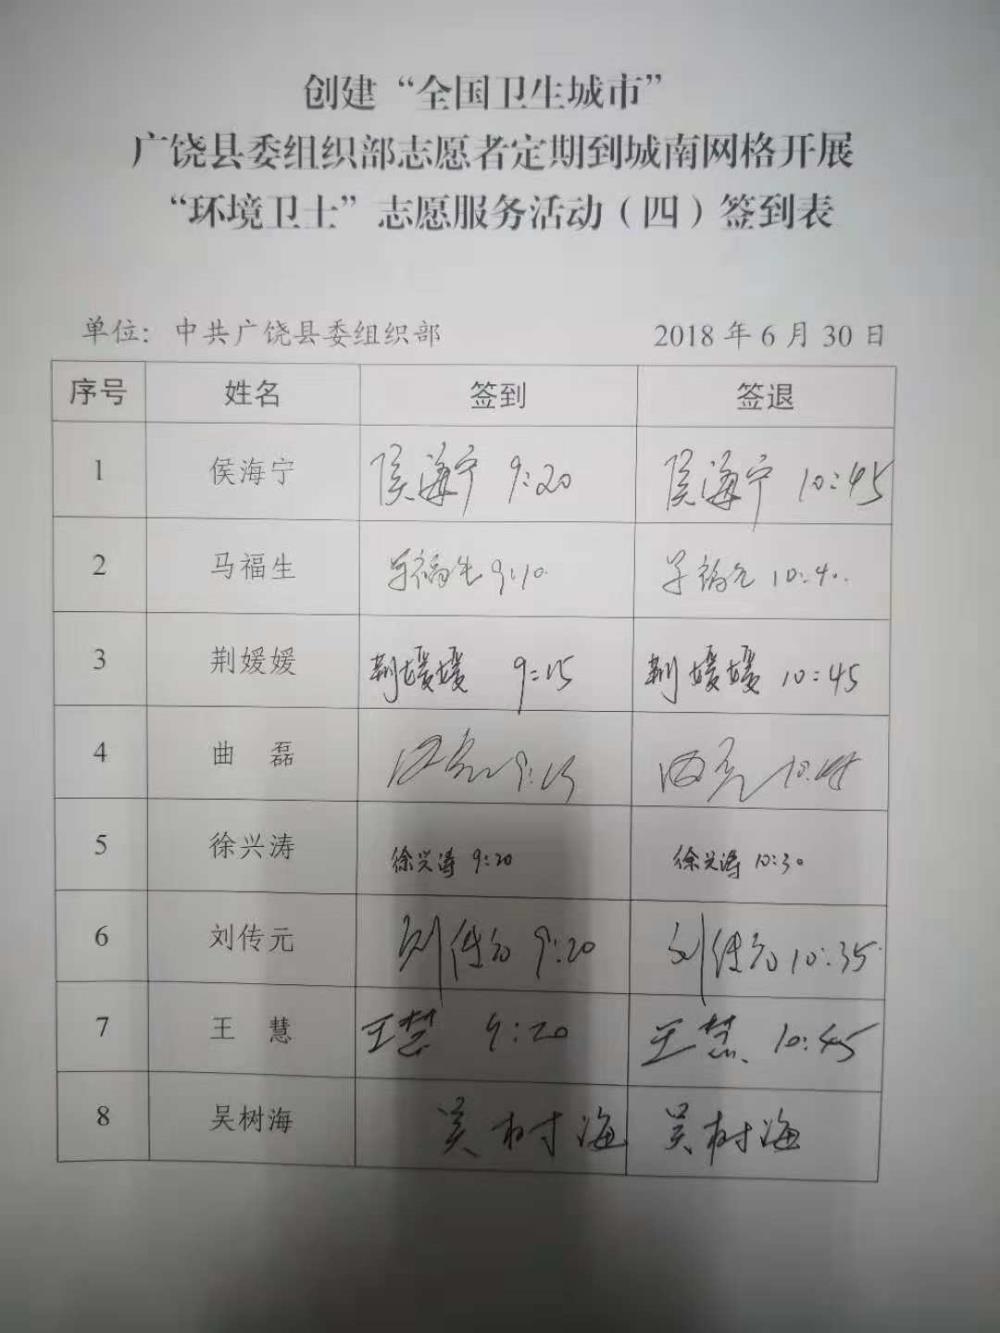 创建“全国卫生城市”
广饶县委组织部志愿者定期到城南网格开展
“环境卫士”志愿服务活动（四）签到表
单位：中共广饶县委组织部 2018年6月30日
序号 姓名 签到 签退
1 侯海宁 侯海宁 9:20 侯海宁 10:45
2 马福生 马福生 9:10 马福生 10:40
3 荆媛媛 荆媛媛 9:15 荆媛媛 10:45
4 曲 磊 曲磊 9:15 曲磊 10:45
5 徐兴涛 徐兴涛 9:20 徐兴涛 10:30
6 刘传元 刘传元 9:20 刘传元 10:35
7 王 慧 王慧 9:20 王慧 10:45
8 吴树海 吴树海 吴树海